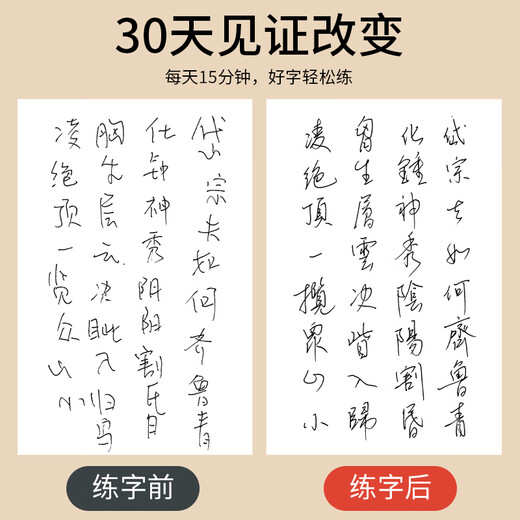 30天见证改变
每天15分钟，好字轻松练
岱宗夫如何齐鲁青
化钟神秀阴阳割昏
胸生层云决眦入归鸟
凌绝顶一览众山小
岱宗夫如何齊魯青
化鍾神秀陰陽割昏
胷生層雲决眥入歸
凌絶頂一攬眾山小
练字前
练字后